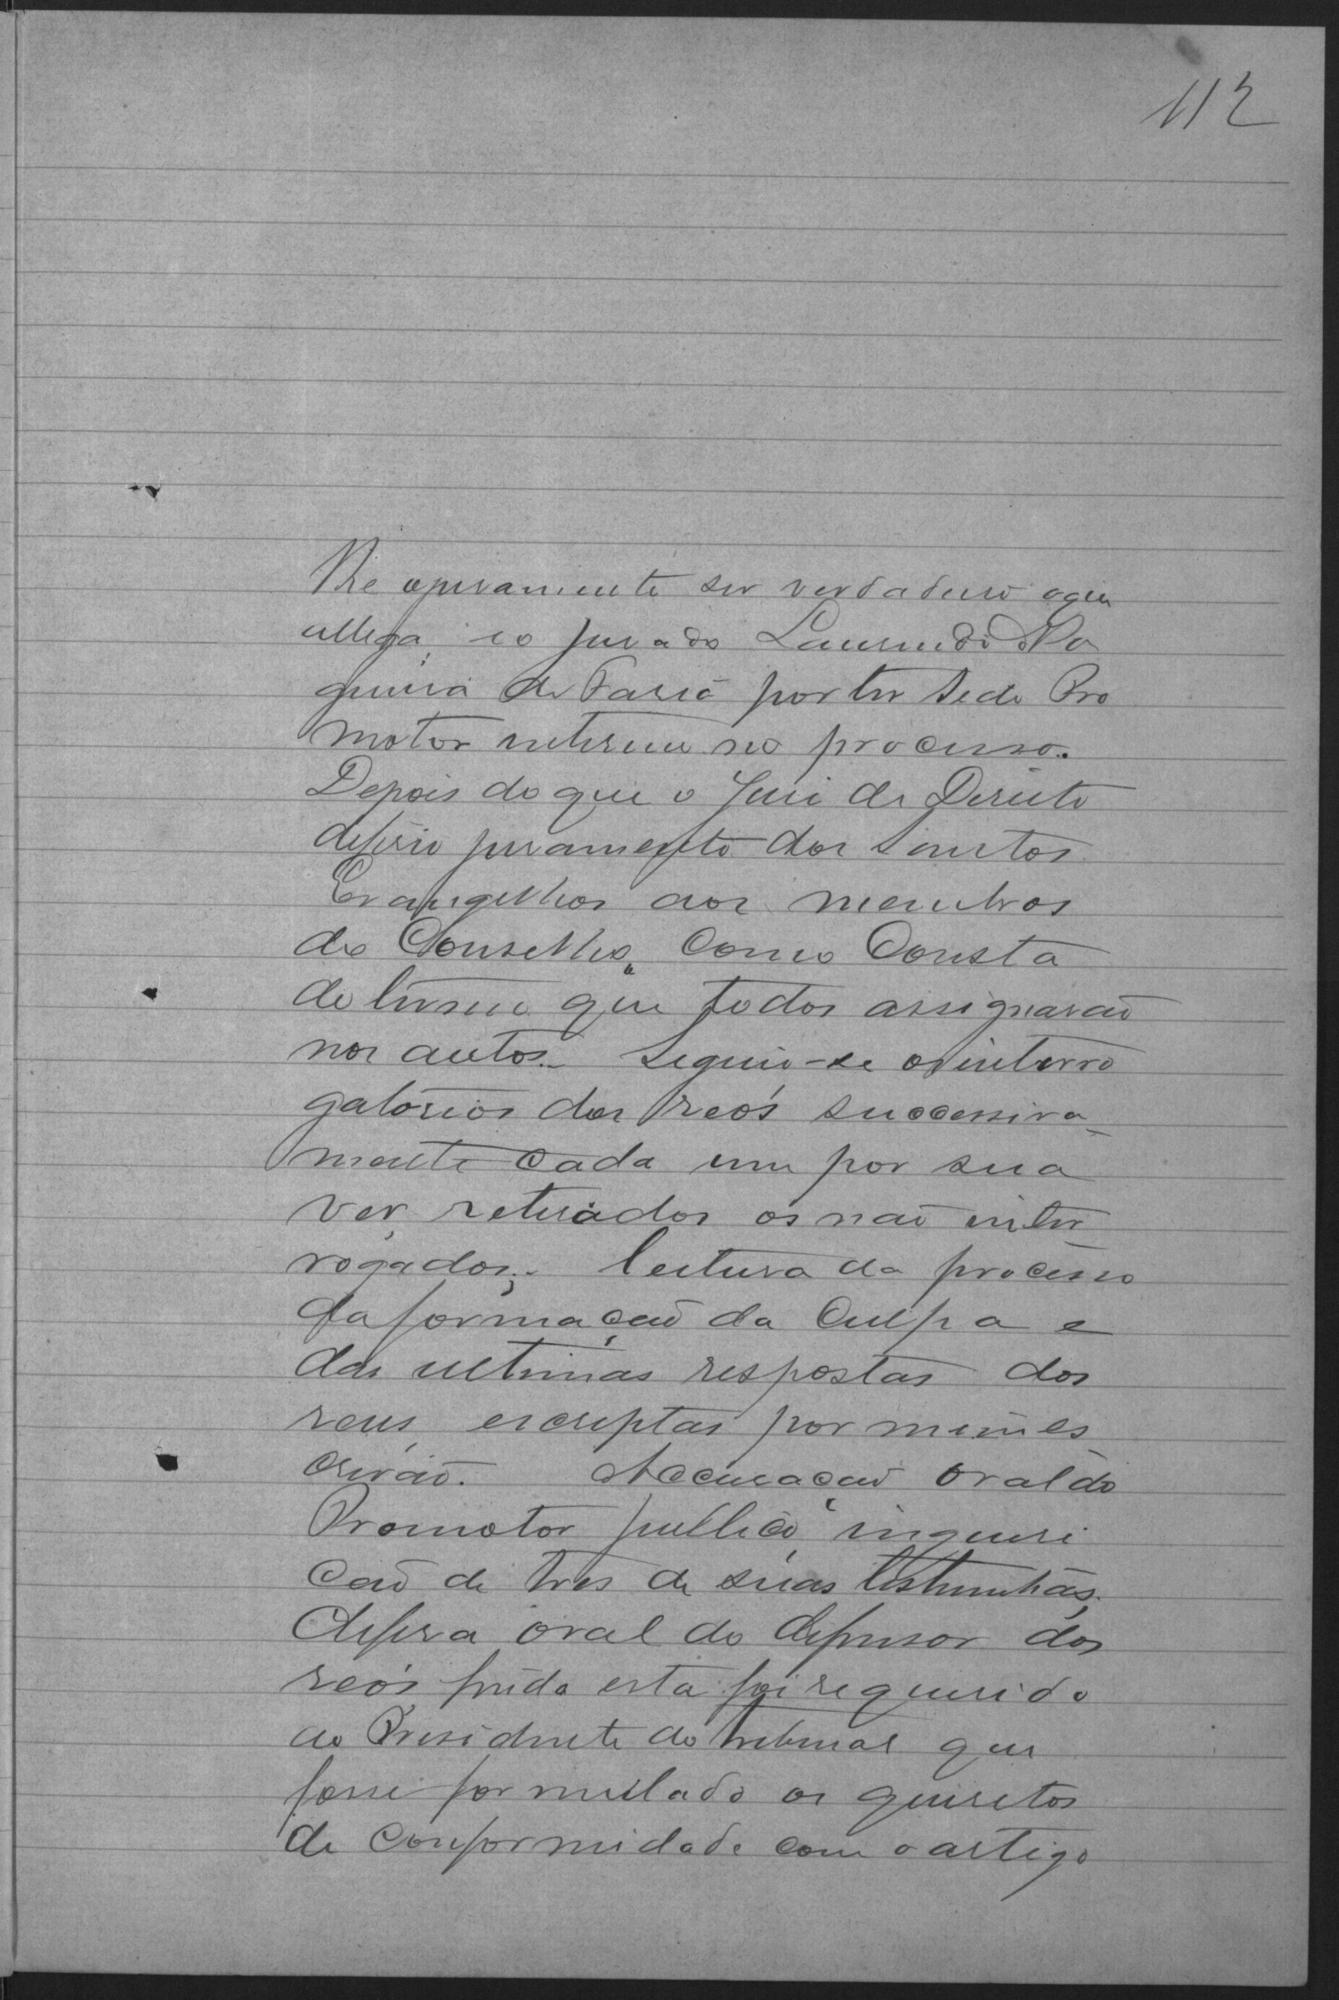 112
ser verdadeiro o que
allega, e o jurado Laurindo No
gueira de Faria por ter sido Pro
motor interino no processo.
Depois do que o Juis de Direito
deferio juramento dos Santos
Evangelhos aos membros
do Conselho, como consta
do termo que todos assignarão
nos autos. Seguio-se o interro
gatorios dos reós successiva
mente cada um por sua
vez, retirados os não inter
rogados; leitura do processo
da formação da culpa e
das ultimas respostas dos
reus, escriptas por mim es
crivão. Accusação oral do
Promotor publico, inqueri
ção de tres de suas testemunhas,
defesa oral do defensor dos
reós finda esta foi requerido
ao Presidente do tribunal que
fosse formulado os quisetos
de conformidade com o artigo